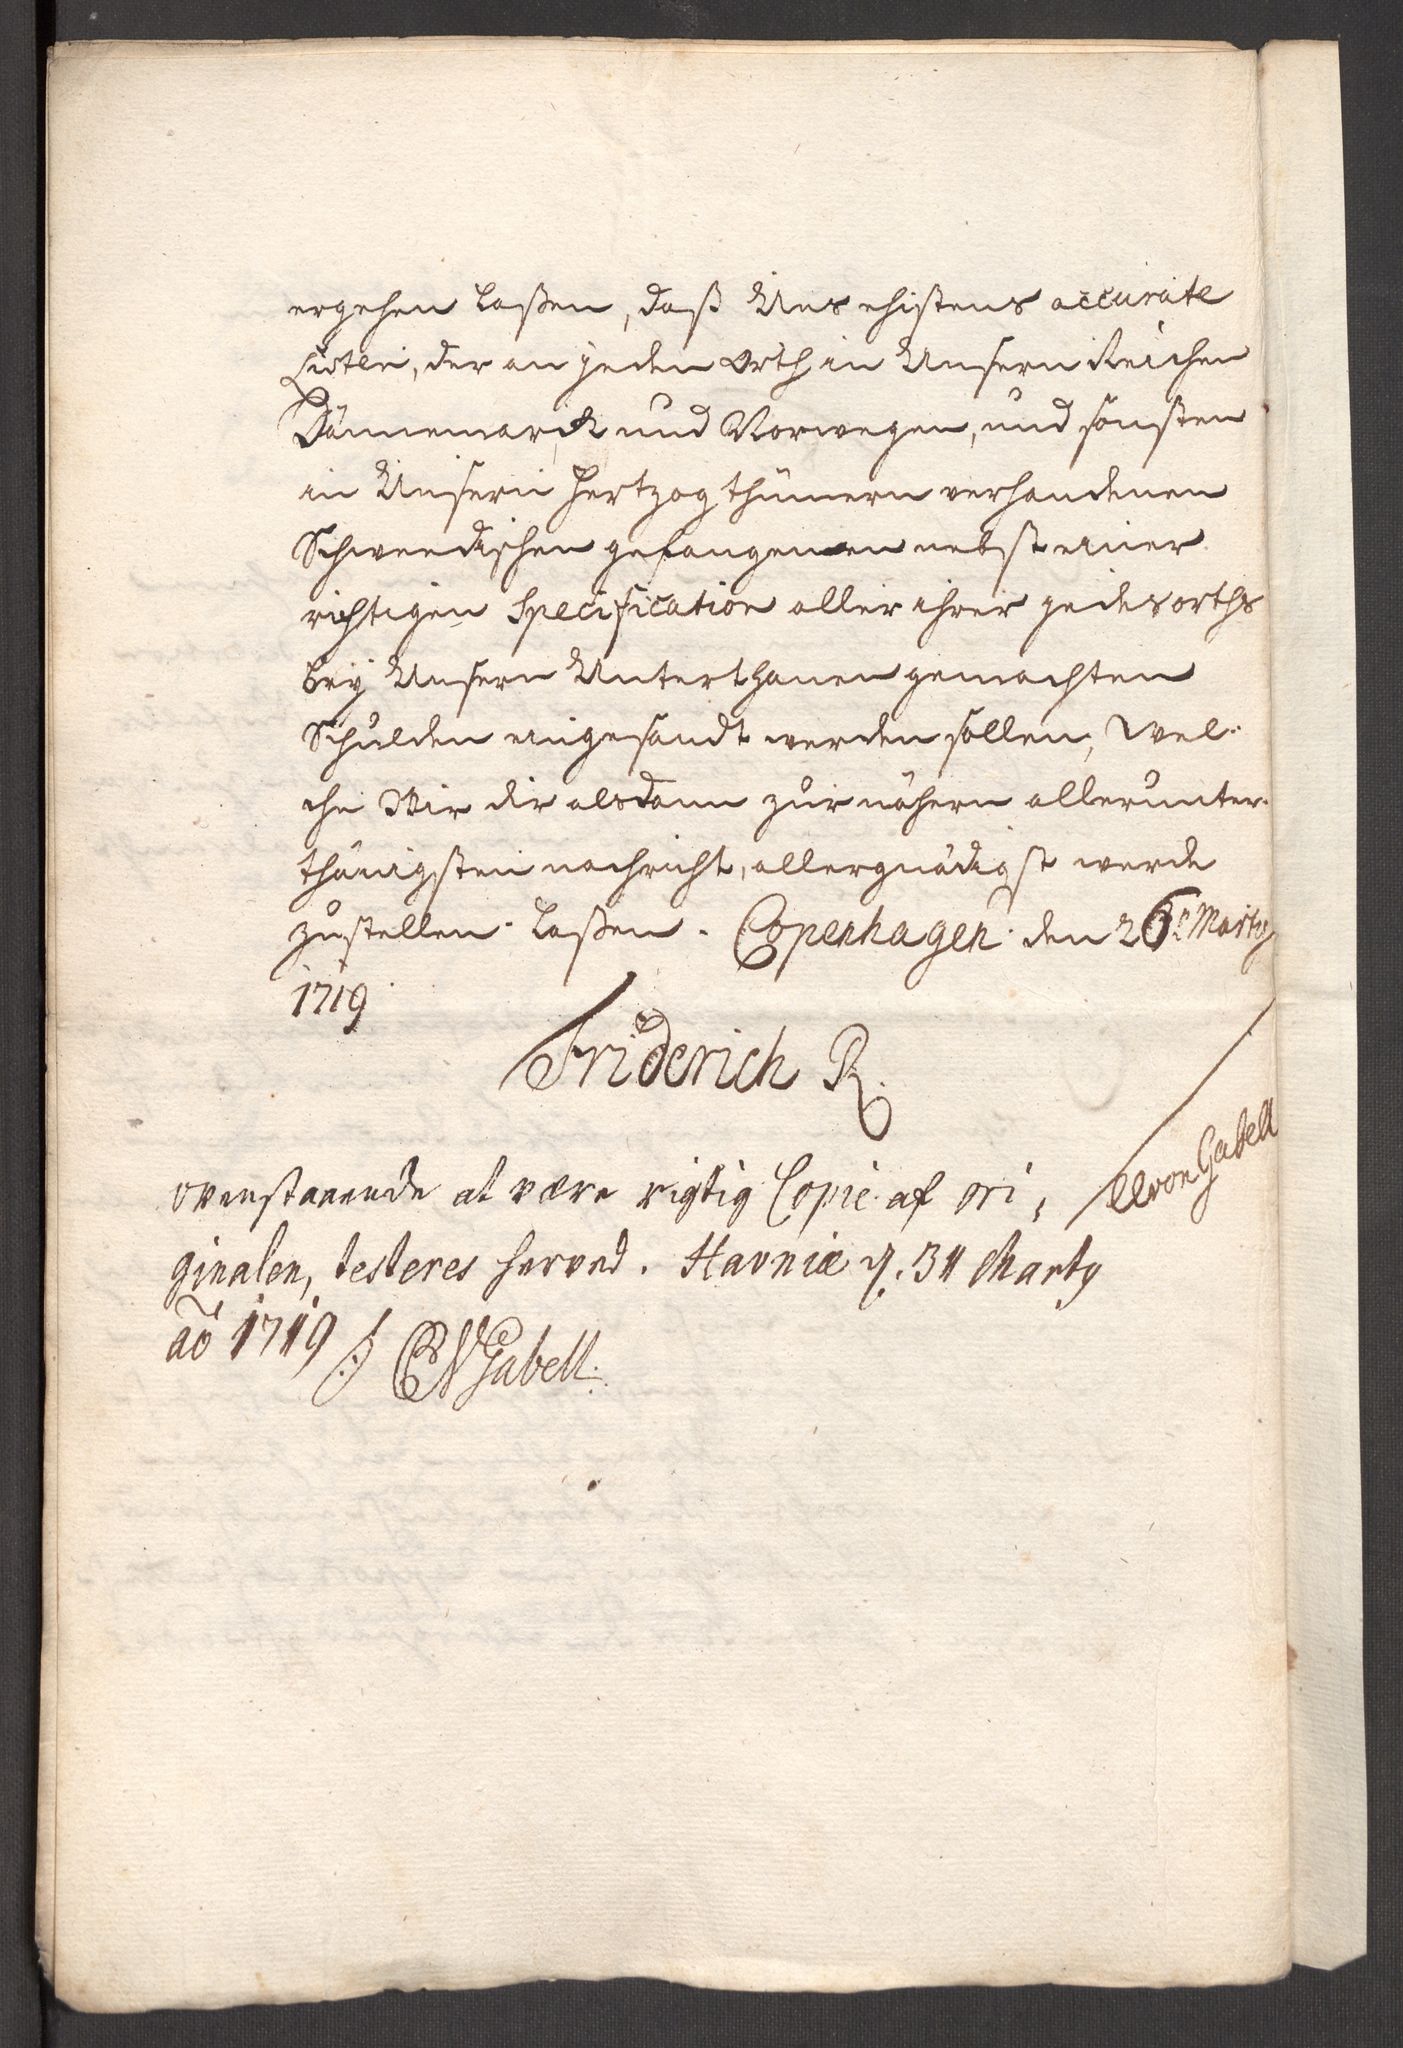 ergehen laßen, daß Uns ehistens accurate
Listen, der an jeden Orth in Unsern Reichen
Dännemarck und Norwegen, und sonsten
in Unsern Hertzogthümern verhandenen
Schwedischen gefangenen nebst einer
richtigen Specification aller ihrer jedes orths
bey Unsern Unterthanen gemachten
Schulden eingesandt werden sollen, Wel-
che Wir dir alsdann zur nähern allerunter-
thänigsten nachricht, allergnädigst werde
zustellen laßen. Copenhagen den 26 Marty
1719
Friderich R.
von Gabell
ovenstaaende at være rigtig Copie af ori,
ginalen, testeres herved. Havniæ d. 31 Marty
ao 1719 CNGabell.